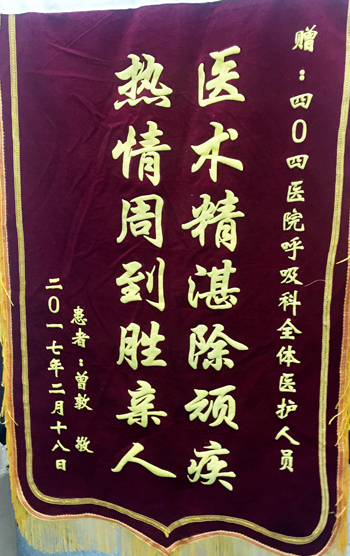 赠：四0四医院呼吸科全体医护人员
医术精湛除顽疾
热情周到胜亲人
患者：曾敦 敬
二0一七年二月十八日